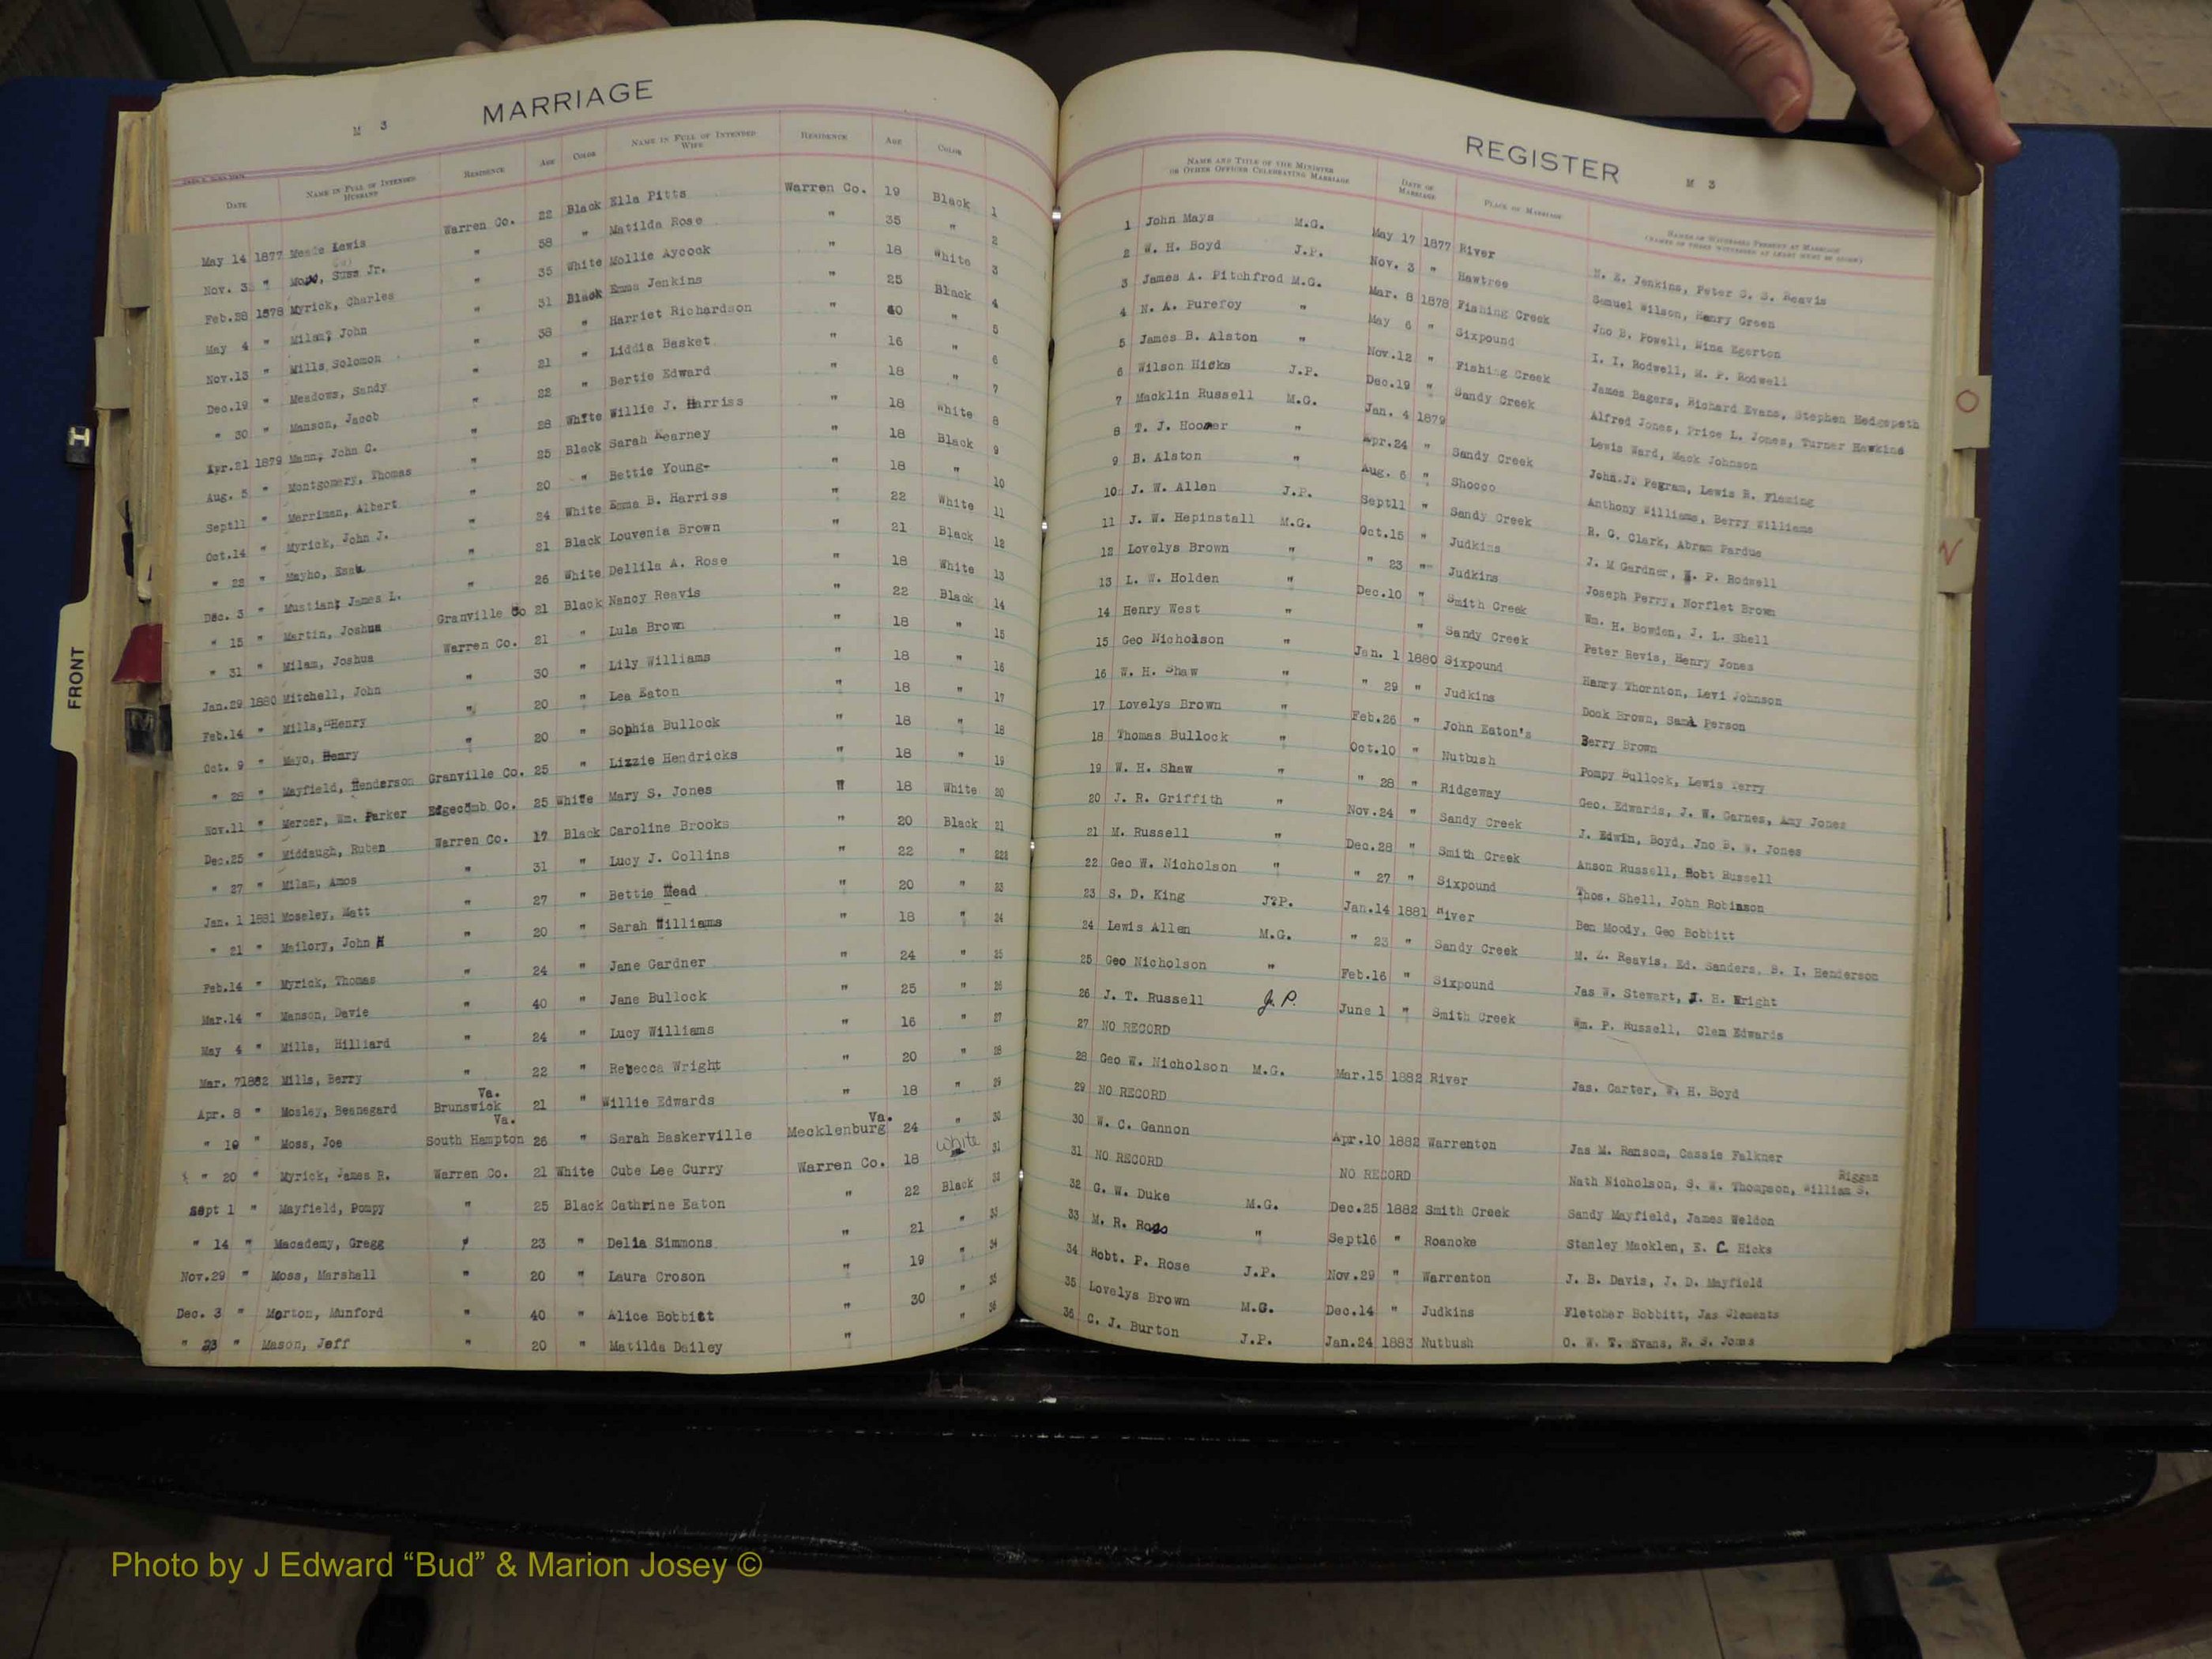 MARRIAGE
M 3
DATE NAME IN FULL OF INTENDED HUSBAND RESIDENCE AGE COLOR NAME IN FULL OF INTENDED WIFE RESIDENCE AGE COLOR
May 14 1877 Meade Lewis Warren Co. 22 Black Ella Pitts Warren Co. 19 Black 1
Nov. 3 " Suss Jr. " 58 " Matilda Rose " 35 " 2
Feb.28 1878 Myrick, Charles " 35 White Mollie Aycock " 18 White 3
May 4 " Milam, John " 31 Black Emma Jenkins " 25 Black 4
Nov.13 " Mills, Solomon " 38 " Harriet Richardson " 40 " 5
Dec.19 " Meadows, Sandy " 21 " Liddia Basket " 16 " 6
" 30 " Manson, Jacob " 22 " Bertie Edward " 18 " 7
Apr.21 1879 Mann, John C. " 28 White Willie J. Harriss " 18 White 8
Aug. 5 " Montgomery, Thomas " 25 Black Sarah Kearney " 18 Black 9
Sept11 " Merriman, Albert " 20 " Bettie Young- " 18 " 10
Oct.14 " Myrick, John J. " 24 White Emma B. Harriss " 22 White 11
" 22 " Mayho, " 21 Black Louvenia Brown " 21 Black 12
Dec. 3 " Mustian, James L. " 26 White Dellila A. Rose " 18 White 13
" 15 " Martin, Joshua Granville Co 21 Black Nancy Reavis " 22 Black 14
" 31 " Milam, Joshua Warren Co. 21 " Lula Brown " 18 " 15
Jan.29 1880 Mitchell, John " 30 " Lily Williams " 18 " 16
Feb.14 " Mills, Henry " 20 " Lea Eaton " 18 " 17
Oct. 9 " Mayo, Henry " 20 " Sophia Bullock " 18 " 18
" 28 " Mayfield, Henderson Granville Co. 25 " Lizzie Hendricks " 18 " 19
Nov.11 " Mercer, Wm. Parker Edgecomb Co. 25 White Mary S. Jones " 18 White 20
Dec.25 " Middaugh, Ruben Warren Co. 17 Black Caroline Brooks " 20 Black 21
" 27 " Milam, Amos " 31 " Lucy J. Collins " 22 " 222
Jan. 1 1881 Moseley, Matt " 27 " Bettie Mead " 20 " 23
" 21 " Mallory, John H " 20 " Sarah Williams " 18 " 24
Feb.14 " Myrick, Thomas " 24 " Jane Gardner " 24 " 25
Mar.14 " Manson, Davie " 40 " Jane Bullock " 25 " 26
May 4 " Mills, Hilliard " 24 " Lucy Williams " 16 " 27
Mar. 71882 Mills, Berry " 22 " Rebecca Wright " 20 " 28
Va.
Apr. 8 " Mosley, Beanegard Brunswick 21 " Willie Edwards " 18 " 29
Va. Va.
" 10 " Moss, Joe South Hampton 26 " Sarah Baskerville Mecklenburg 24 " 30
" 20 " Myrick, James R. Warren Co. 21 White Cube Lee Curry Warren Co. 18 White 31
Sept 1 " Mayfield, Pompy " 25 Black Cathrine Eaton " 22 Black 32
" 14 " Macademy, Gregg " 23 " Delia Simmons " 21 " 33
Nov.29 " Moss, Marshall " 20 " Laura Croson " 19 " 34
Dec. 3 " Morton, Munford " 40 " Alice Bobbitt " 30 " 35
" 23 " Mason, Jeff " 20 " Matilda Dailey " " 36
REGISTER
M 3
NAME AND TITLE OF THE MINISTER OR OTHER OFFICER CELEBRATING MARRIAGE DATE OF MARRIAGE PLACE OF MARRIAGE NAMES OF WITNESSES PRESENT AT MARRIAGE
(NAMES OF THREE WITNESSES AT LEAST MUST BE GIVEN)
1 John Mays M.G. May 17 1877 River N. E. Jenkins, Peter G. S. Reavis
2 W. H. Boyd J.P. Nov. 3 " Hawtree Samuel Wilson, Henry Green
3 James A. Pitchfrod M.G. Mar. 8 1878 Fishing Creek Jno B. Powell, Nina Egerton
4 N. A. Purefoy " May 6 " Sixpound I. I. Rodwell, M. P. Rodwell
5 James B. Alston " Nov.12 " Fishing Creek James Bagers, Richard Evans, Stephen Hedgepeth
6 Wilson Hicks J.P. Dec.19 " Sandy Creek Alfred Jones, Price L. Jones, Turner Hawkins
7 Macklin Russell M.G. Jan. 4 1879 Lewis Ward, Mack Johnson
8 T. J. Hooker " Apr.24 " Sandy Creek John.J. Pegram, Lewis R. Fleming
9 B. Alston " Aug. 6 " Shocco Anthony Williams, Berry Williams
10 J. W. Allen J.P. Sept11 " Sandy Creek R. G. Clark, Abram Pardue
11 J. W. Hepinstall M.G. Oct.15 " Judkins J. M Gardner, P. Rodwell
12 Lovelys Brown " " 23 " Judkins Joseph Perry, Norflet Brown
13 L. W. Holden " Dec.10 " Smith Creek Wm. H. Bowden, J. L. Shell
14 Henry West " " Sandy Creek Peter Revis, Henry Jones
15 Geo Nicholson " Jan. 1 1880 Sixpound Henry Thornton, Levi Johnson
16 W. H. Shaw " " 29 " Judkins Dock Brown, Saml Person
17 Lovelys Brown " Feb.26 " John Eaton's Berry Brown
18 Thomas Bullock " Oct.10 " Nutbush Pompy Bullock, Lewis Terry
19 W. H. Shaw " " 28 " Ridgeway Geo. Edwards, J. W. Garnes, Amy Jones
20 J. R. Griffith " Nov.24 " Sandy Creek J. Edwin, Boyd, Jno B. W. Jones
21 M. Russell " Dec.28 " Smith Creek Anson Russell, Robt Russell
22 Geo W. Nicholson " " 27 " Sixpound Thos. Shell, John Robinson
23 S. D. King J?P. Jan.14 1881 River Ben Moody, Geo Bobbitt
24 Lewis Allen M.G. " 23 " Sandy Creek M. Z. Reavis, Ed. Sanders, B. I. Henderson
25 Geo Nicholson " Feb.16 " Sixpound Jas W. Stewart, J. H. Wright
26 J. T. Russell J. P. June 1 " Smith Creek Wm. P. Russell, Clem Edwards
27 NO RECORD
28 Geo W. Nicholson M.G. Mar.15 1882 River Jas. Carter, W. H. Boyd
29 NO RECORD
30 W. C. Gannon Apr.10 1882 Warrenton Jas M. Ransom, Cassie Falkner
Riggan
31 NO RECORD NO RECORD Nath Nicholson, S. W. Thompson, William S.
32 G. W. Duke M.G. Dec.25 1882 Smith Creek Sandy Mayfield, James Weldon
33 M. R. " Sept16 " Roanoke Stanley Macklen, E. C. Hicks
34 Robt. P. Rose J.P. Nov.29 " Warrenton J. B. Davis, J. D. Mayfield
35 Lovelys Brown M.G. Dec.14 " Judkins Fletcher Bobbitt, Jas Clements
36 C. J. Burton J.P. Jan.24 1883 Nutbush O. W. T. Evans, R. S. Jones
FRONT
O
N
Photo by J Edward “Bud” & Marion Josey ©